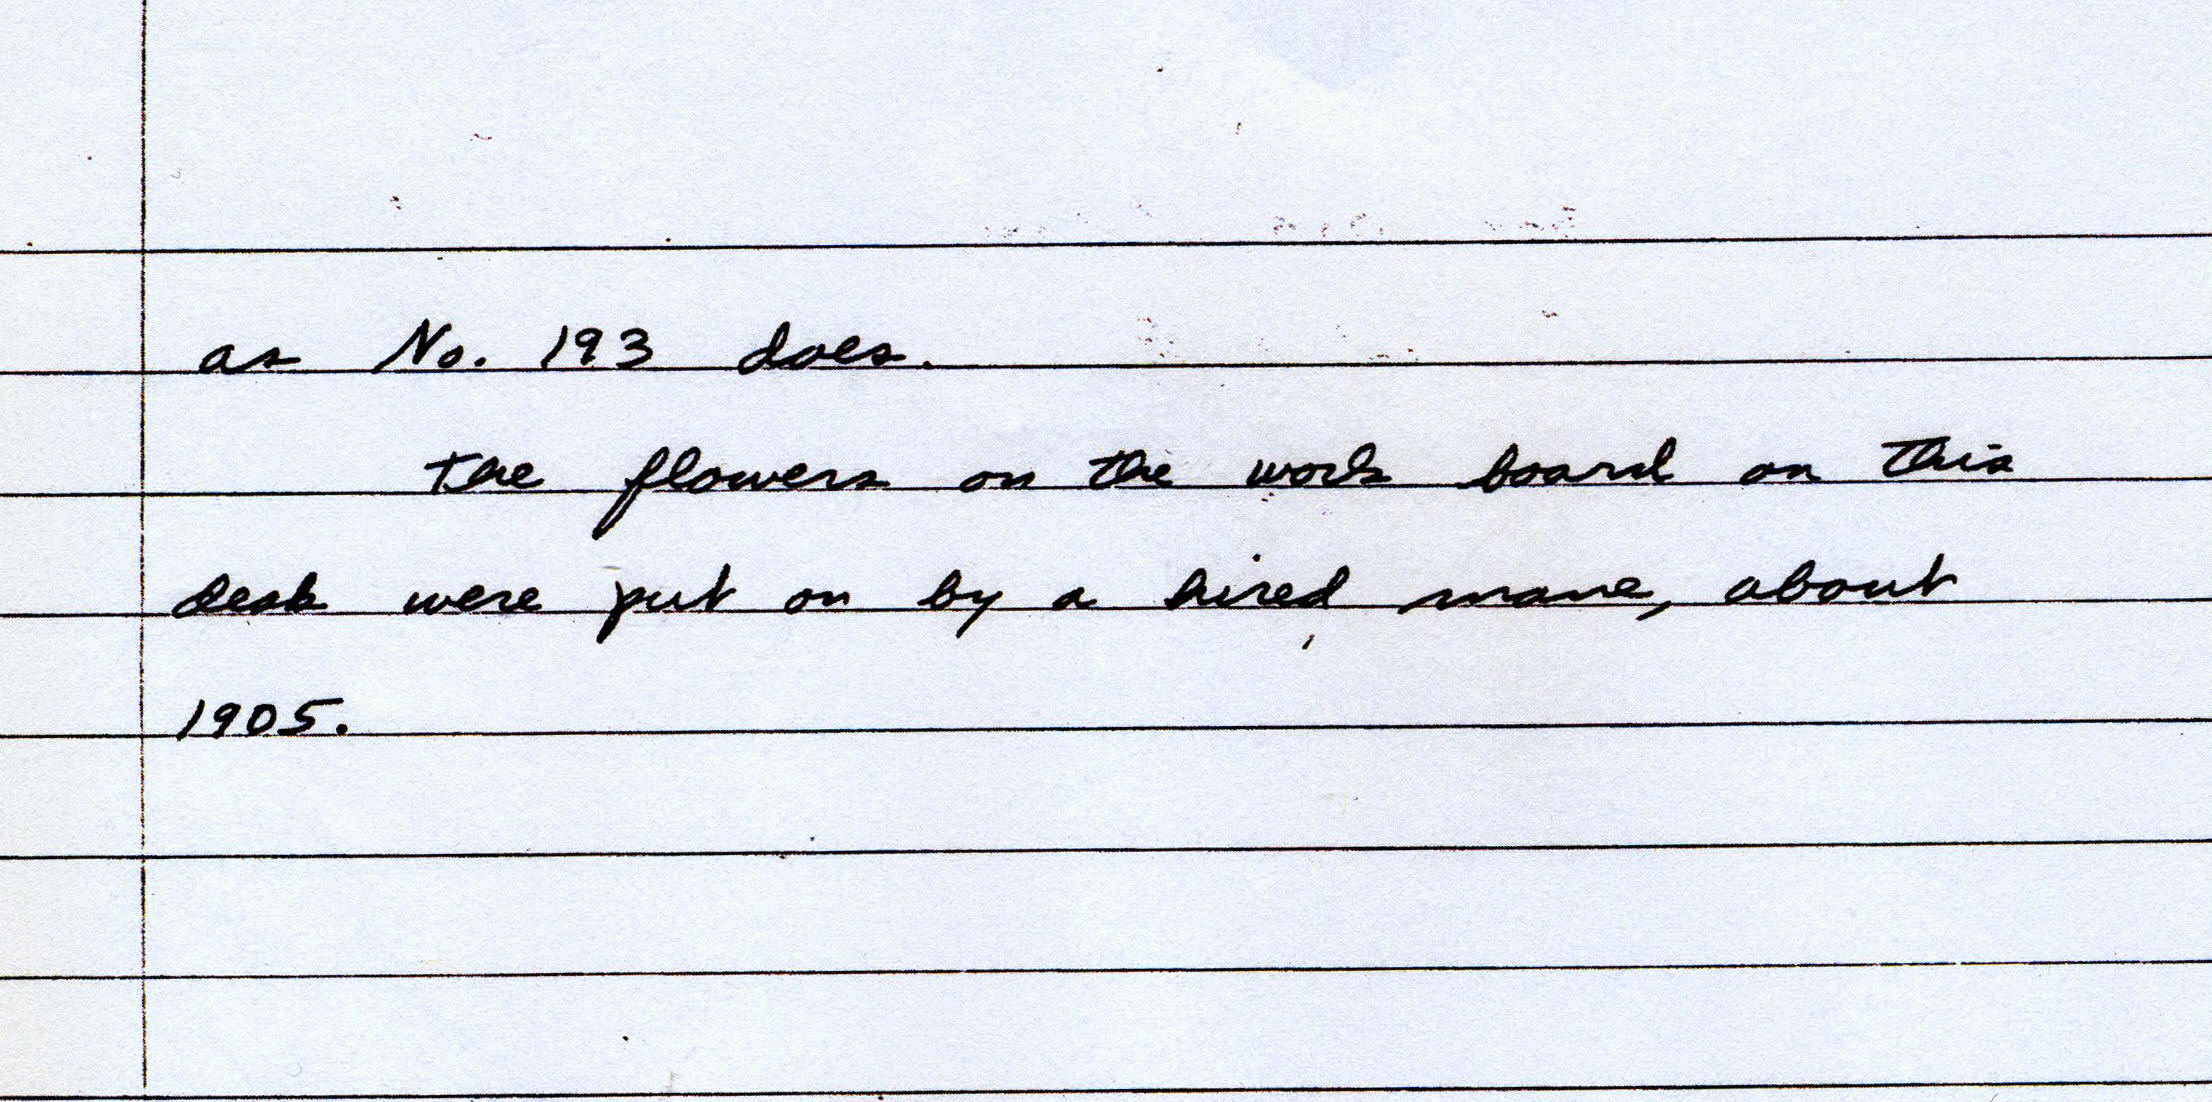 as No. 193 does.
The flowers on the work board on this
desk were put on by a hired mane, about
1905.